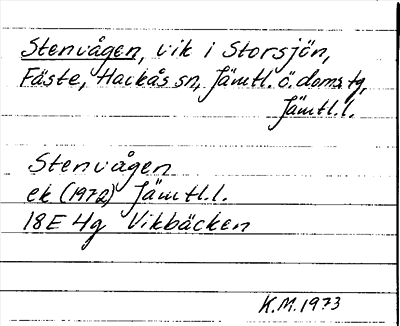 Stenvågen, vik i Storsjön,
Fäste, Hackås sn, Jämtl. ö. doms tg,
Jämtl. l.
Stenvågen
ek (1972) Jämtl. l.
18E 4g Vikbäcken
K.M. 1973